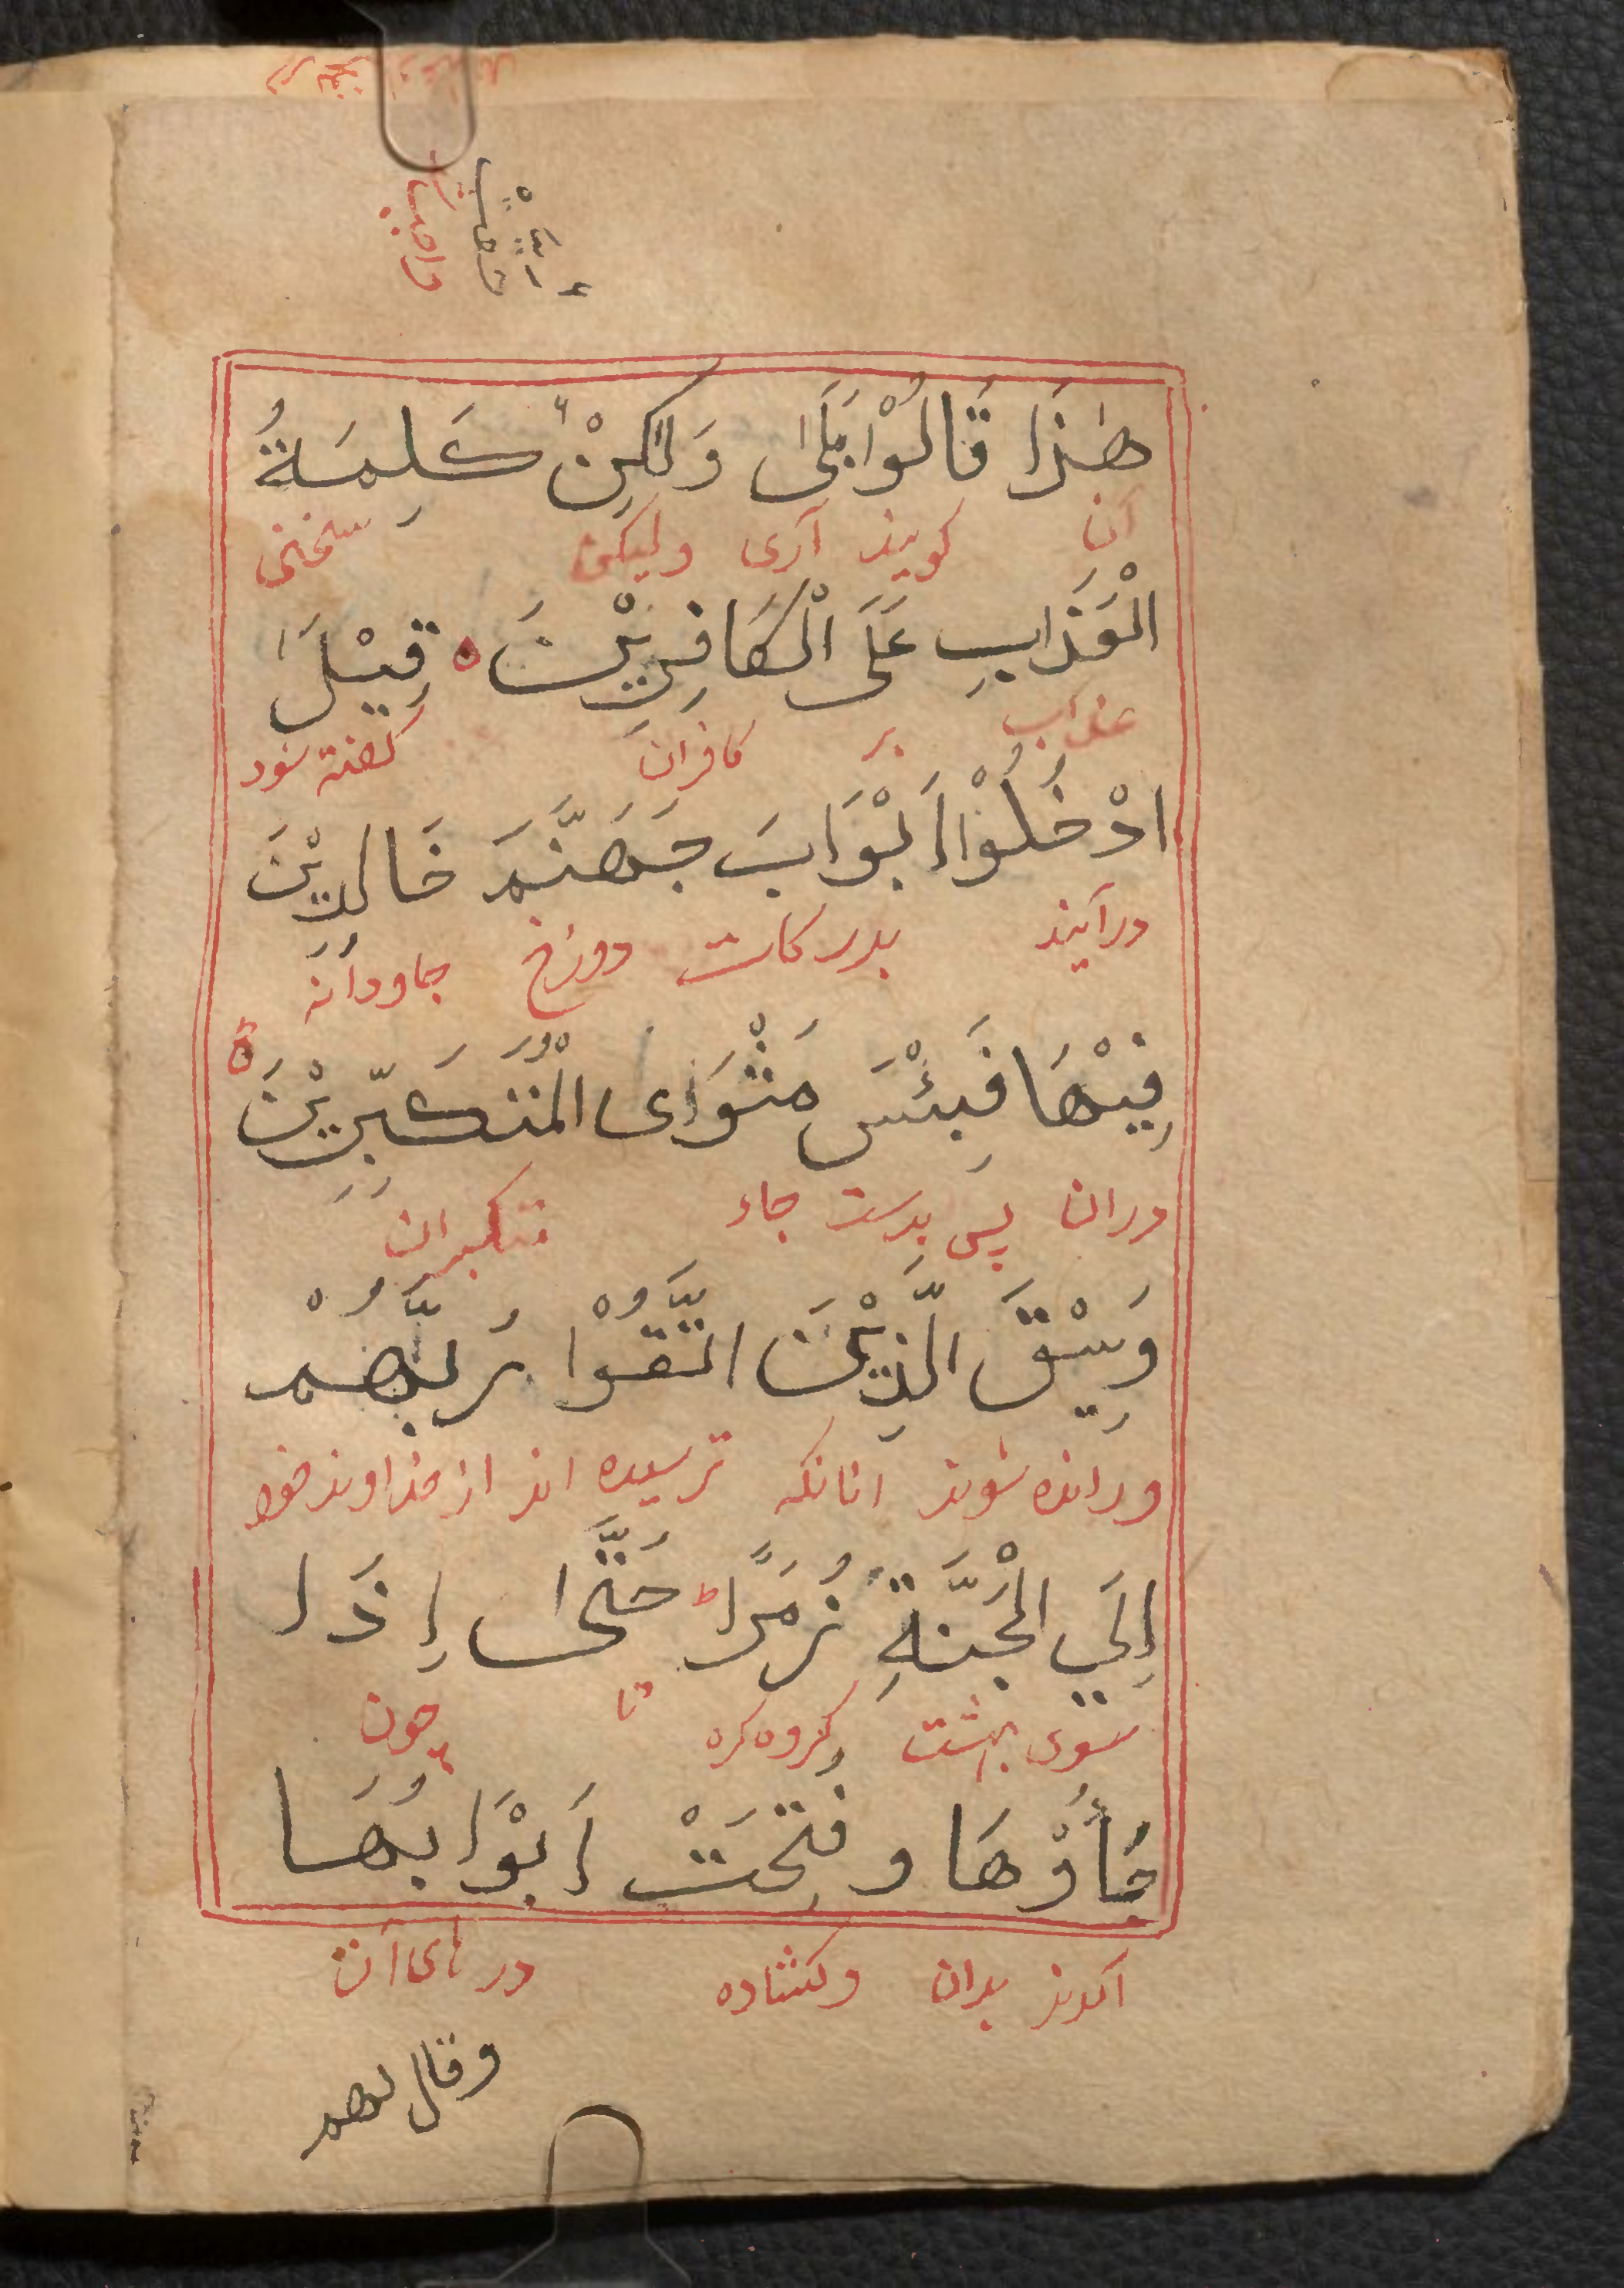 هٰذَا قَالُوْا بَلَىٰ وَلٰكِنْ كَلِمَةُ
آن گویند آری ولیکن سخنی
الْعَذَابِ عَلَى الْكَافِرِيْنَ ٥ قِيْلَ
عذاب بر کافران گفته شود
ادْخُلُوْا اَبْوَابَ جَهَنَّمَ خَالِدِيْنَ
درآیند بدرکات دوزخ جاودانه
فِيْهَا فَبِئْسَ مَثْوَاى الْمُتَكَبِّرِيْنَ ٥
دران پس بدست جاء متکبران
وَسِيْقَ الَّذِيْنَ اتَّقَوْا رَبَّهُمْ
ورانده شوند انانکه ترسیده اند از خداوند خود
إِلَي الْجَنَّةِ زُمَرًا ط حَتّٰى إِذَا
سوی بهشت گروه گره تا چون
جَاؤُوْهَا وفُتِحَتْ أَبْوَابُهَا
آیدند بدان وکشاده درهای آن
وقال لهم